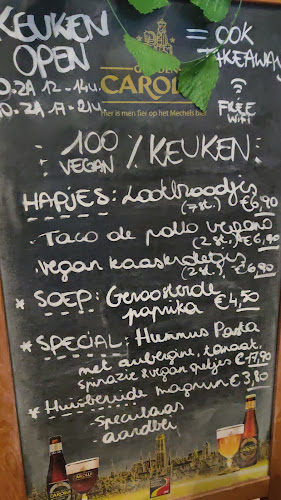 KEUKEN
OPEN
= OOK
TAKEAWAY
GOUDEN
CAROLUS
Hier is men fier op het Mechels bier.
FREE
WiFi
100 % KEUKEN
VEGAN
HAPJES: Lookbroodjes
(7st.) €6,90
- Taco de pollo vegano
(2st.) €6,90
- vegan kaaskroketjes
(2st.) €6,90
* SOEP: Geroosterde
paprika €4,50
* SPECIAL: Hummus Pasta
met aubergine, tomaat,
spinazie & vegan €17,90
* Huisbereide magnum €3,80
- speculaas
- aardbei
CAROLUS